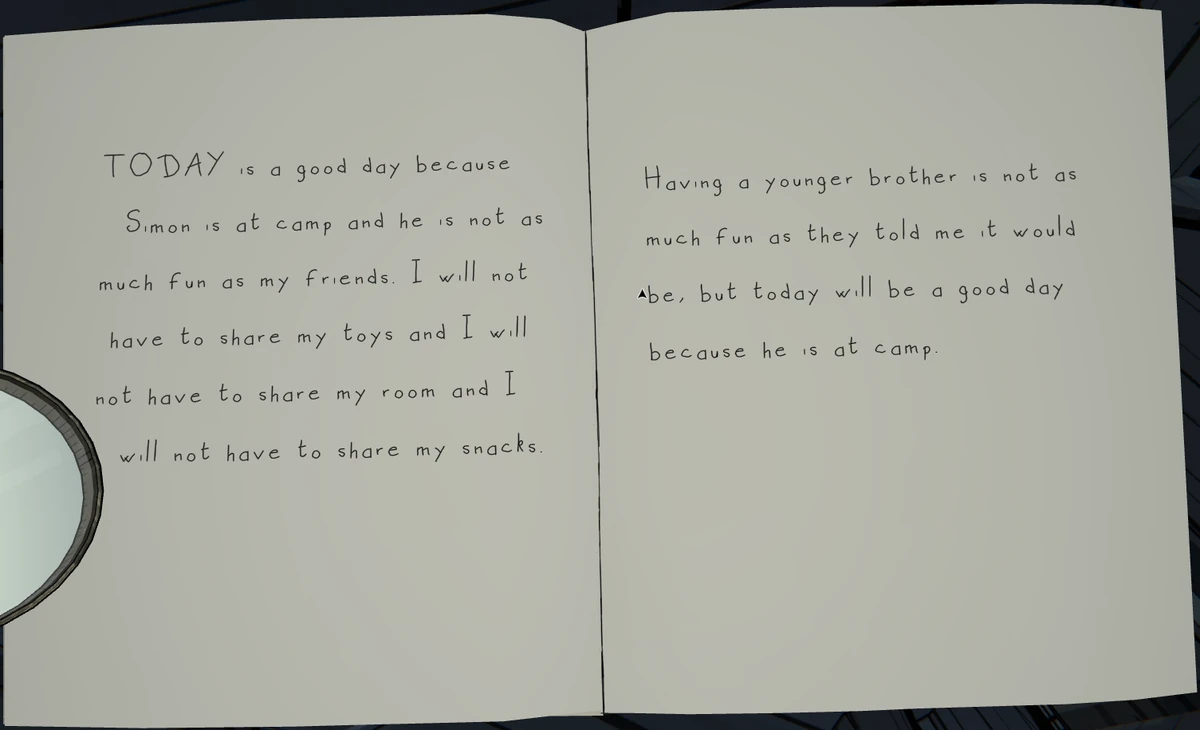 TODAY is a good day because
Simon is at camp and he is not as
much fun as my friends. I will not
have to share my toys and I will
not have to share my room and I
will not have to share my snacks.
Having a younger brother is not as
much fun as they told me it would
be, but today will be a good day
because he is at camp.